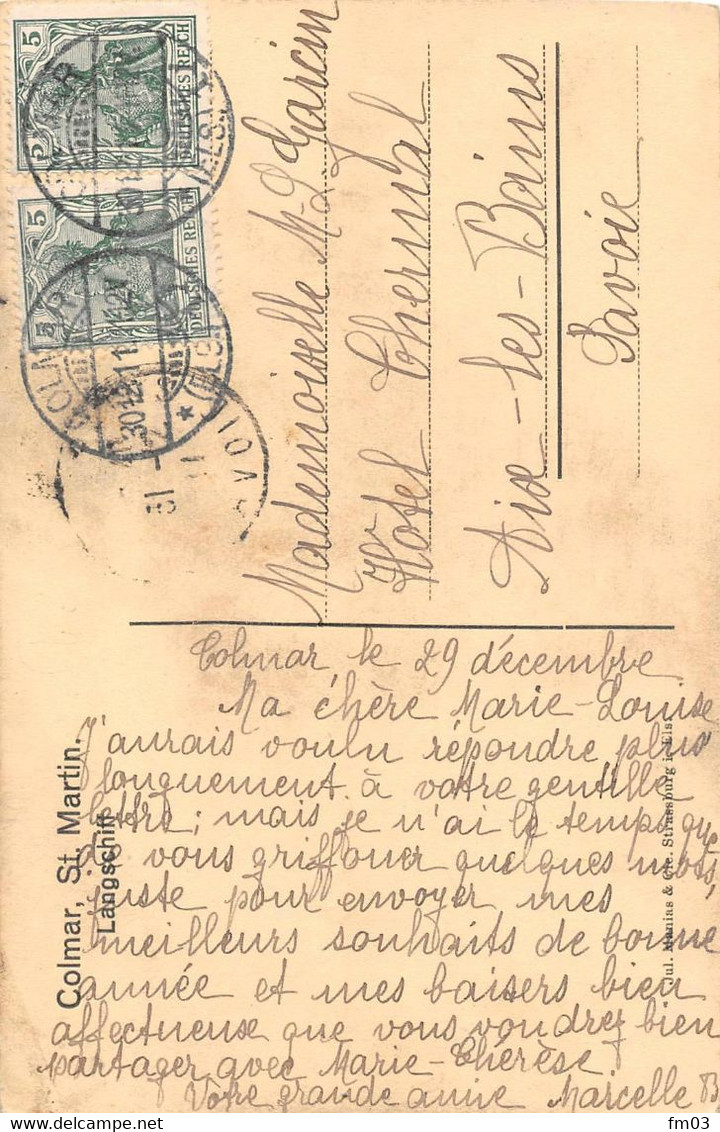 5
DEUTSCHES REICH
5
DEUTSCHES REICH
COLMAR
(ELS.)
30.12.11
Mademoiselle M-L Garcin
Hôtel Thermal
Aix-les-Bains
Savoie
Colmar, St. Martin.
Langschiff
Jul. Manias & Cie. Strassburg i. Els.
Colmar le 29 décembre
Ma chère Marie-Louise
J'aurais voulu répondre plus
longuement à votre gentille
lettre; mais je n'ai le temps que
de vous griffoner quelques mots,
juste pour envoyer mes
meilleurs souhaits de bonne
année et mes baisers bien
affectueuse que vous voudrez bien
partager avec Marie-Thérèse.
Votre grande amie Marcelle B
fm03